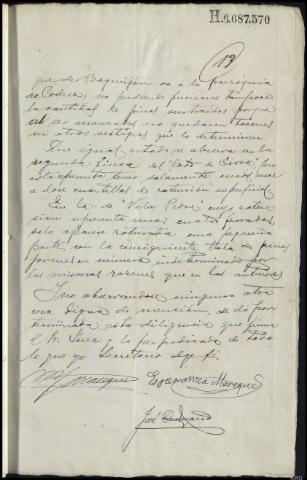 H.6.687.570
13
que de Baquiján va a la parroquia
de Codesa, no pudiendo precisar tampoco
la cantidad de pinos sustraidos porque
al ser arrancados no quedaron tocones
ni otros vestigios que lo determinen.
En igual estado se observa en la
segunda finca del "Coto de Cerca", que
esta afectada solamente
a dos cuartillos de extensión superficial
En la de "Vila Pedre" cuya exten
sión aparenta unos cuatro ferrados,
solo aparece roturada una pequeña
parte, con la consiguiente tala de pinos
jovenes en número indeterminado por
las mismas razones que en las anteriores.
Y no observandose ninguna otra
cosa digna de mención, se dá por
terminada esta diligencia que firma
el Sr. Juez y la perjudicada de todo
lo que yo Secretario doy fé.
Esperanza Mareque
José